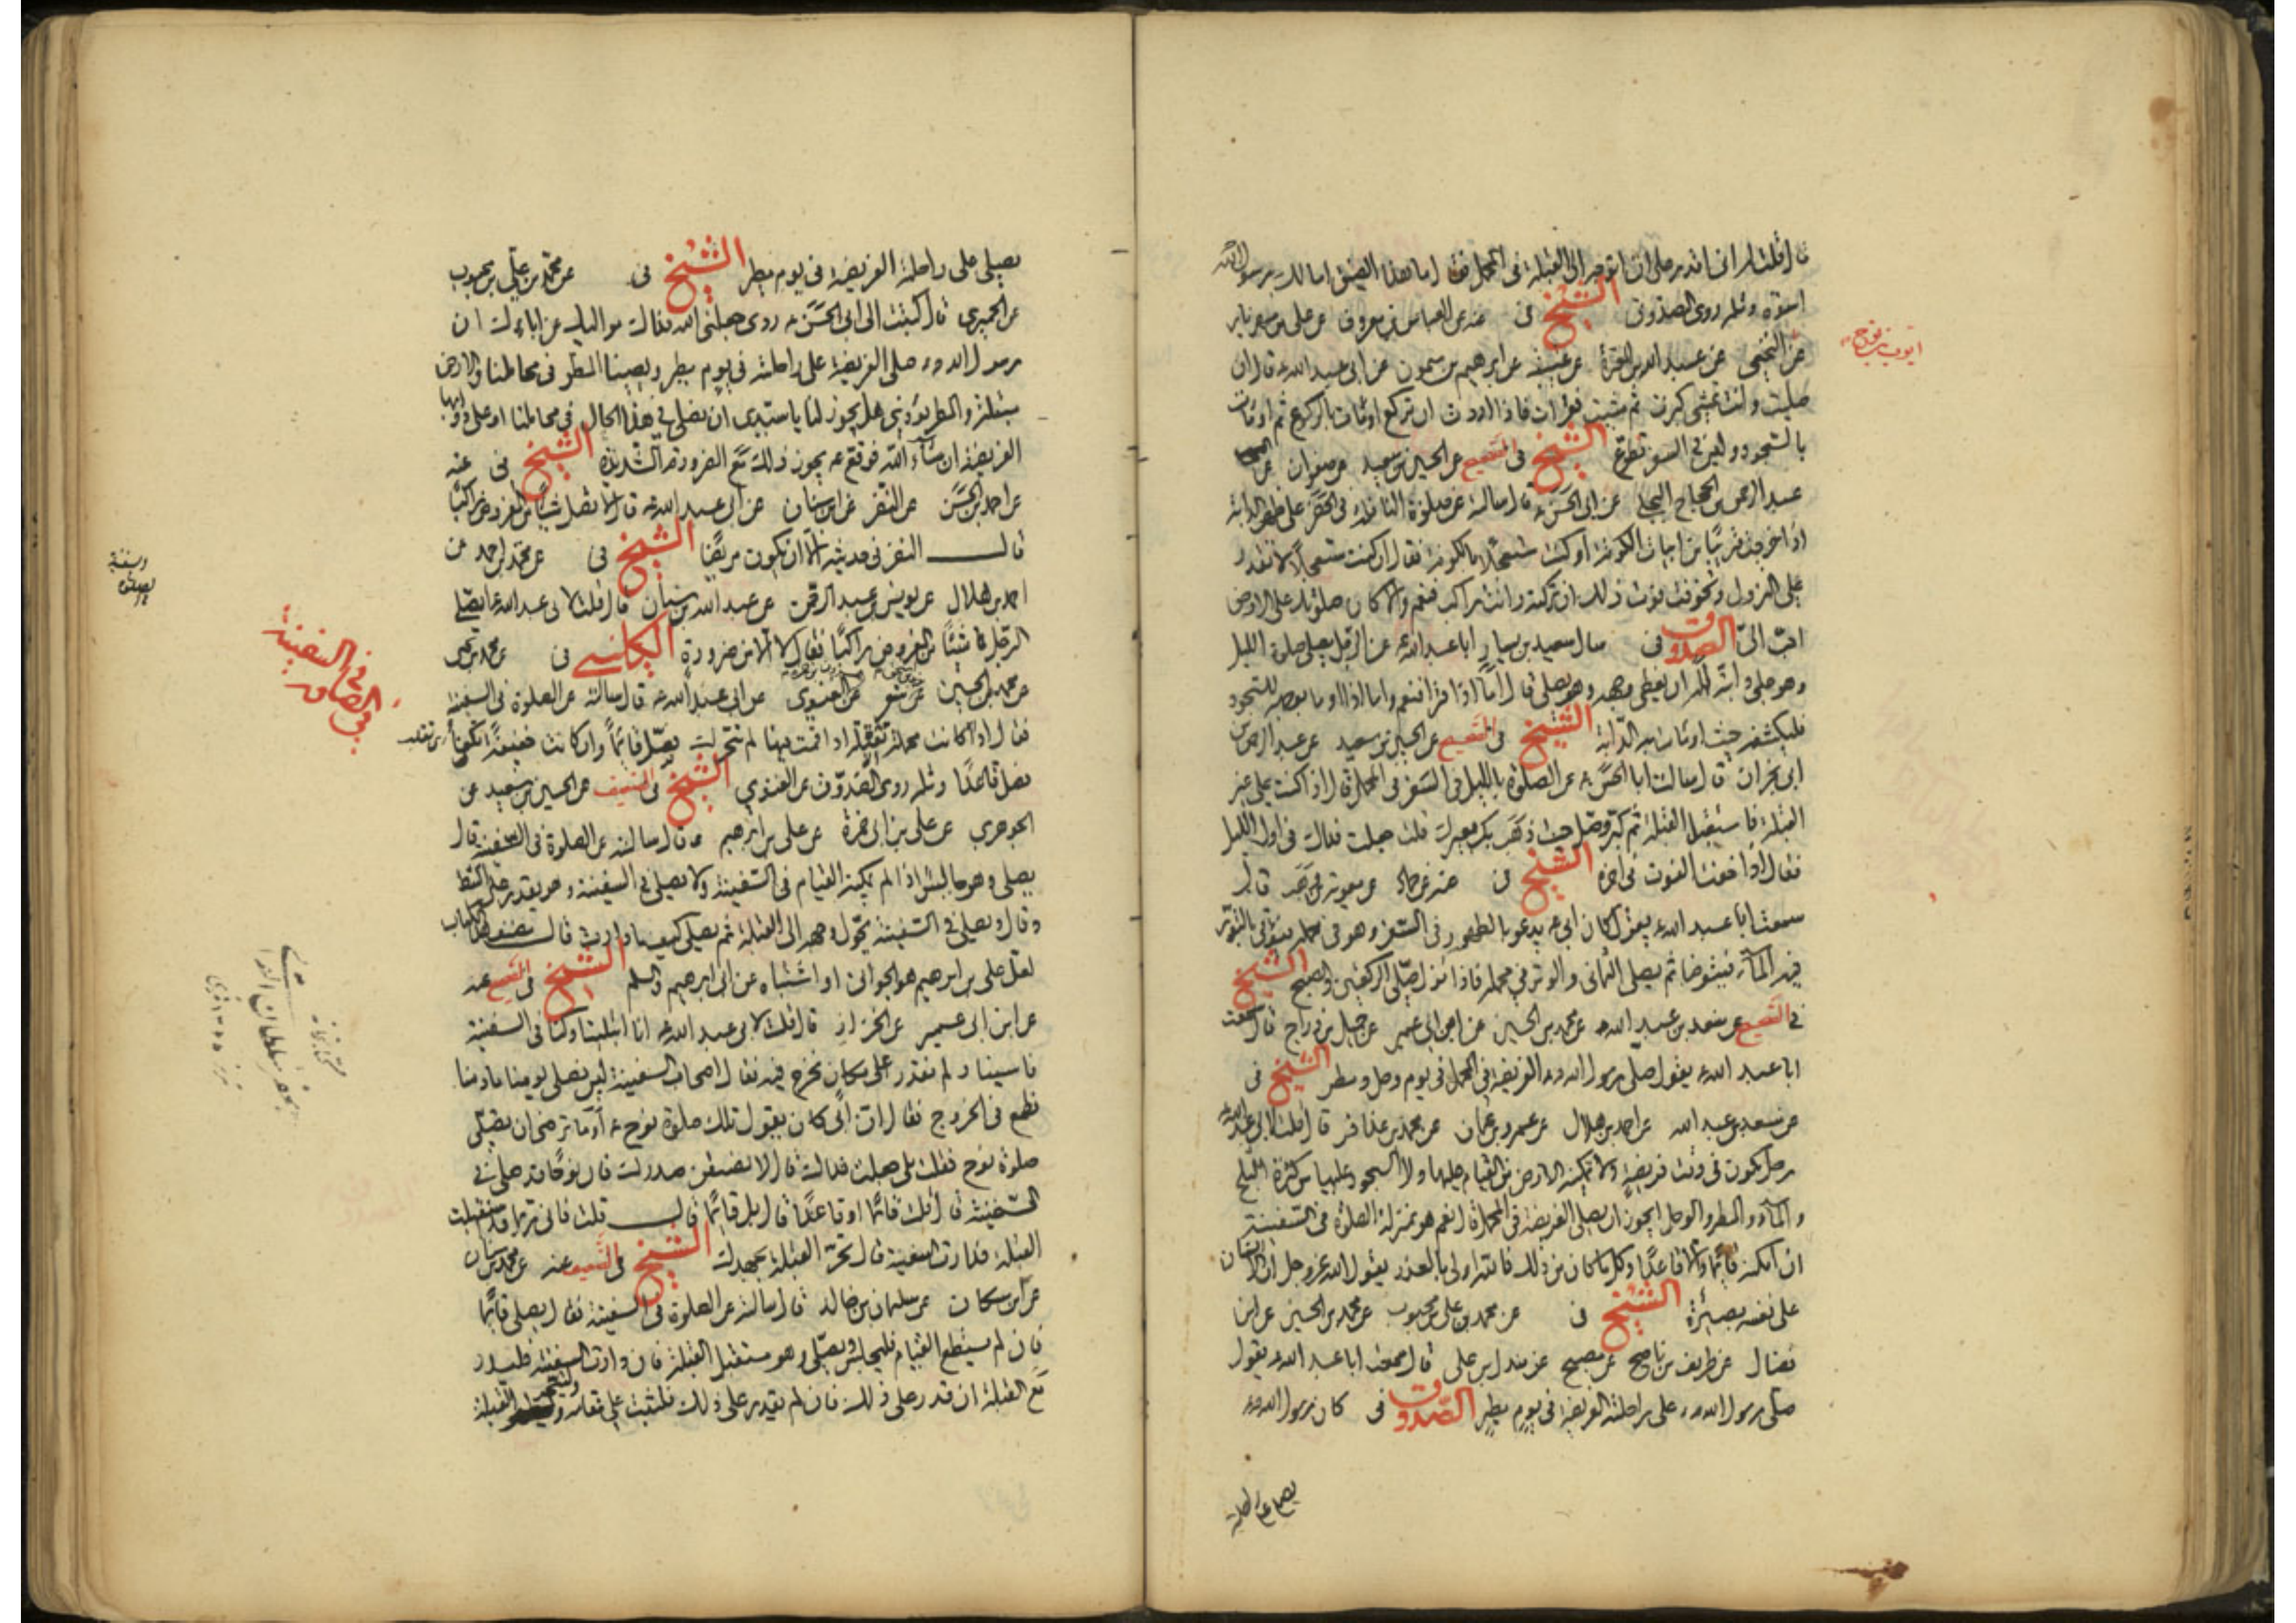 قال قلت له انى اقدر على ان اتوجه الى القبلة فى المحمل فقال ما هذا الضيق اما لك برسول الله
اسوة ومثله روى الصدوق الشيخ فى عنه عن العباس بن معروف عن على بن مهزيار
عن عبد الله بن المغيرة عن عيينة عن ابرهيم بن ميمون عن ابى عبد الله ع قال ان
صليت وانت تمشى كبرت ثم مشيت فقرأت فاذا اردت ان تركع اومأت بالركوع ثم اومأت
بالسجود وليس فى السفر تطوع الشيخ فى الصحيح عن الحسين بن سعيد عن صفوان عن
عبد الرحمن بن الحجاج البجلى عن ابى الحسن ع قال سالته عن صلوة النافلة فى الحضر على ظهر الدابة
اذا خرجت قريبا من ابيات الكوفة او كنت مستعجلا بالكوفة فقال ان كنت مستعجلا لا تقدر
على النزول وتخوفت فوت ذلك ان تركته وانت راكب فنعم والا فان صلوتك على الارض
احب الىّ الصدوق فى سال سعيد بن يسار ابا عبد الله ع عن الرجل يصلى صلوة الليل
وهو على دابته اله ان يغطى وجهه وهو يصلى قال اما اذا قرأ فنعم واما اذا اومأ بوجهه للسجود
فليكشفه حيث اومات به الدابة الشيخ فى الصحيح عن الحسين بن سعيد عن عبد الرحمن بن
ابى نجران قال سالت ابا الحسن ع عن الصلوة بالليل فى السفر فى المحمل قال اذا كنت على غير
القبلة فاستقبل القبلة ثم كبر وصل حيث ذهب بك بعيرك قلت جعلت فداك فى اول الليل
فقال اذا خفت الفوت فى اخره الشيخ فى عنه عن حماد عن معوية بن وهب قال
سمعت ابا عبد الله ع يقول كان ابى ع يدعو بالطهور فى السفر وهو فى محمله فيؤتى بالتور
فيه الماء فيتوضا ثم يصلى الثمانى والوتر فى محمله فاذا نزل صلى الركعتين والصبح الشيخ
فى الصحيح عن سعد بن عبد الله عن محمد بن الحسين عن ابن ابى عمير عن جميل بن دراج قال سمعت
ابا عبد الله ع يقول صلى رسول الله ص الفريضة فى المحمل فى يوم وحل ومطر الشيخ فى
عن سعد بن عبد الله عن احمد بن هلال عن عمرو بن عثمان عن محمد بن عذافر قال قلت لابى عبد الله ع
رجل يكون فى وقت فريضة لا تمكنه الارض من القيام عليها ولا السجود عليها من كثرة الثلج
والماء والمطر والوحل ايجوز ان يصلى الفريضة فى المحمل قال نعم هو بمنزلة الصلوة فى السفينة
ان امكنه قائما والا قاعدا وكل ما كان من ذلك فالله اولى بالعذر يقول الله عز وجل بل الانسان
على نفسه بصيرة الشيخ فى عن محمد بن على بن محبوب عن محمد بن الحسين عن ابن
فضال عن ظريف بن ناصح عن مصبح عن مندل بن على قال سمعت ابا عبد الله ع يقول
صلى رسول الله ص على راحلته الفريضة فى يوم مطير الصدوق فى كان رسول الله ص
يصلى على راحلته
ايوب بن نوح
يصلى على راحلته الفريضة فى يوم مطير الشيخ فى عن محمد بن على بن محبوب
عن الحميرى قال كتبت الى ابى الحسن ع روى جعلنى الله فداك مواليك عن ابائك ان
رسول الله ص صلى الفريضة على راحلته فى يوم مطير ويصيبنا المطر فى محاملنا والارض
مبتلة والمطر يؤذى هل يجوز لنا يا سيدى ان نصلى فى هذه الحال فى محاملنا او على دوابنا
الفريضة ان شاء الله فوقع ع يجوز ذلك مع الضرورة الشديدة الشيخ فى عنه
عن احمد بن الحسن عن النضر عن ابن سنان عن ابى عبد الله ع قال لا تصل شيئا من المفروض راكبا
قال النضر فى حديثه الا ان يكون مريضا الشيخ فى عن محمد بن احمد عن
احمد بن هلال عن يونس بن عبد الرحمن عن عبد الله بن سنان قال قلت لابى عبد الله ع ايصلى
الرجل شيئا من المفروض راكبا فقال لا الا من ضرورة الكلينى فى عن محمد بن يحيى
عن محمد بن الحسين عن الغنوى عن ابى عبد الله ع قال سالته عن الصلوة فى السفينة
فقال اذا كانت محملة ثقيلة اذا قمت فيها لم تتحرك فصل قائما وان كانت خفيفة تكفأ
فصل قاعدا ومثله روى الصدوق عن الغنوي الشيخ فى الضعيف عن الحسين بن سعيد عن
الجوهرى عن على بن ابى حمزة عن على بن ابرهيم قال سالته عن الصلوة فى السفينة قال
يصلى وهو جالس اذا لم يمكنه القيام فى السفينة ولا يصلى فى السفينة وهو يقدر على الشط
وقال ويصلى فى السفينة يحول وجهه الى القبلة ثم يصلى كيف ما دارت قال مصنف هذا الكتاب
لعل على بن ابرهيم هو الجوانى او اشتباه عن ابى ابرهيم والسلم الشيخ فى الصحيح عنه
عن ابن ابى عمير عن الخزاز قال قلت لابى عبد الله ع انا ابتلينا وكنا فى السفينة
فامسينا ولم نقدر على مكان نخرج فيه فقال اصحاب السفينة ليس نصلى يومنا ما دمنا
نطمع فى الخروج فقال ان ابى كان يقول تلك صلوة نوح ع اوما ترضى ان تصلى
صلوة نوح فقلت بلى جعلت فداك قال لا يضيقن صدرك فان نوحا قد صلى فى
السفينة قال قلت قائما او قاعدا قال بل قائما قال قلت فانى ربما استقبلت
القبلة فدارت السفينة قال تحر القبلة بجهدك الشيخ فى الصحيح عنه عن محمد بن سنان
عن ابن مسكان عن سليمان بن خالد قال سالته عن الصلوة فى السفينة فقال يصلى قائما
فان لم يستطع القيام فليجلس ويصلى وهو مستقبل القبلة فان دارت السفينة فليدر
مع القبلة ان قدر على ذلك فان لم يقدر على ذلك فليثبت على مقامه وليتحر القبلة
فى الصلوة فى السفينة